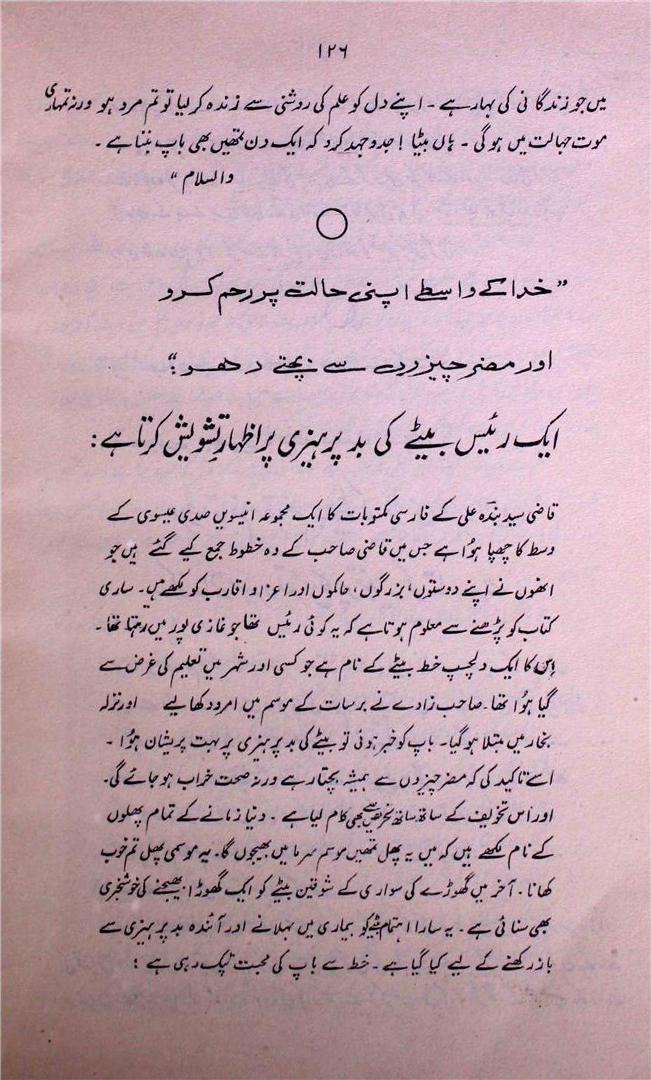 ۱۲۶
میں جو زندگانی کی بہار ہے ۔ اپنے دل کو علم کی روشنی سے زندہ کر لیا تو تم مرد ہو ورنہ تمہاری
موت جہالت میں ہو گی ۔ ہاں بیٹا ! جدوجہد کرو کہ ایک دن تمھیں بھی باپ بننا ہے ۔
والسلام "
"خدا کے واسطے اپنی حالت پر رحم کرو
اور مضر چیزوں سے بچتے رہو :"
ایک رئیس بیٹے کی بد پرہیزی پر اظہارِ تشویش کرتا ہے :
قاضی سید بندہ علی کے فارسی مکتوبات کا ایک مجموعہ انیسویں صدی عیسوی کے
وسط کا چھپا ہوُا ہے جس میں قاضی صاحب کے وہ خطوط جمع کیے گئے ہیں جو
انھوں نے اپنے دوستوں، بزرگوں، حاکموں اور اعزا و اقارب کو لکھے ہیں ۔ ساری
کتاب کو پڑھنے سے معلوم ہوتا ہے کہ یہ کوئی رئیس تھا جو غازی پور میں رہتا تھا ۔
اِس کا ایک دلچسپ خط بیٹے کے نام ہے جو کسی اور شہر میں تعلیم کی غرض سے
گیا ہوُا تھا ۔ صاحب زادے نے برسات کے موسم میں امرود کھا لیے اور نزلہ
بخار میں مبتلا ہو گیا ۔ باپ کو خبر ہوئی تو بیٹے کی بد پرہیزی پر بہت پریشان ہوُا ۔
اسے تاکید کی کہ مضر چیزوں سے ہمیشہ بچتا رہے ورنہ صحت خراب ہو جائے گی ۔
اور اُس تخویف کے ساتھ ساتھ تحریص سے بھی کام لیا ہے ۔ دنیا زمانے کے تمام پھلوں
کے نام لکھے ہیں کہ میں یہ پھل تمھیں موسم سرما میں بھیجوں گا ۔ یہ موسمی پھل تم خوب
کھانا ۔ آخر میں گھوڑے کی سواری کے شوقین بیٹے کو ایک گھوڑا بھیجنے کی خوشخبری
بھی سنائی ہے ۔ یہ سارا اہتمام بیٹے کو بیماری میں بہلانے اور آئندہ بد پرہیزی سے
باز رکھنے کے لیے کیا گیا ہے ۔ خط سے باپ کی محبت ٹپک رہی ہے :